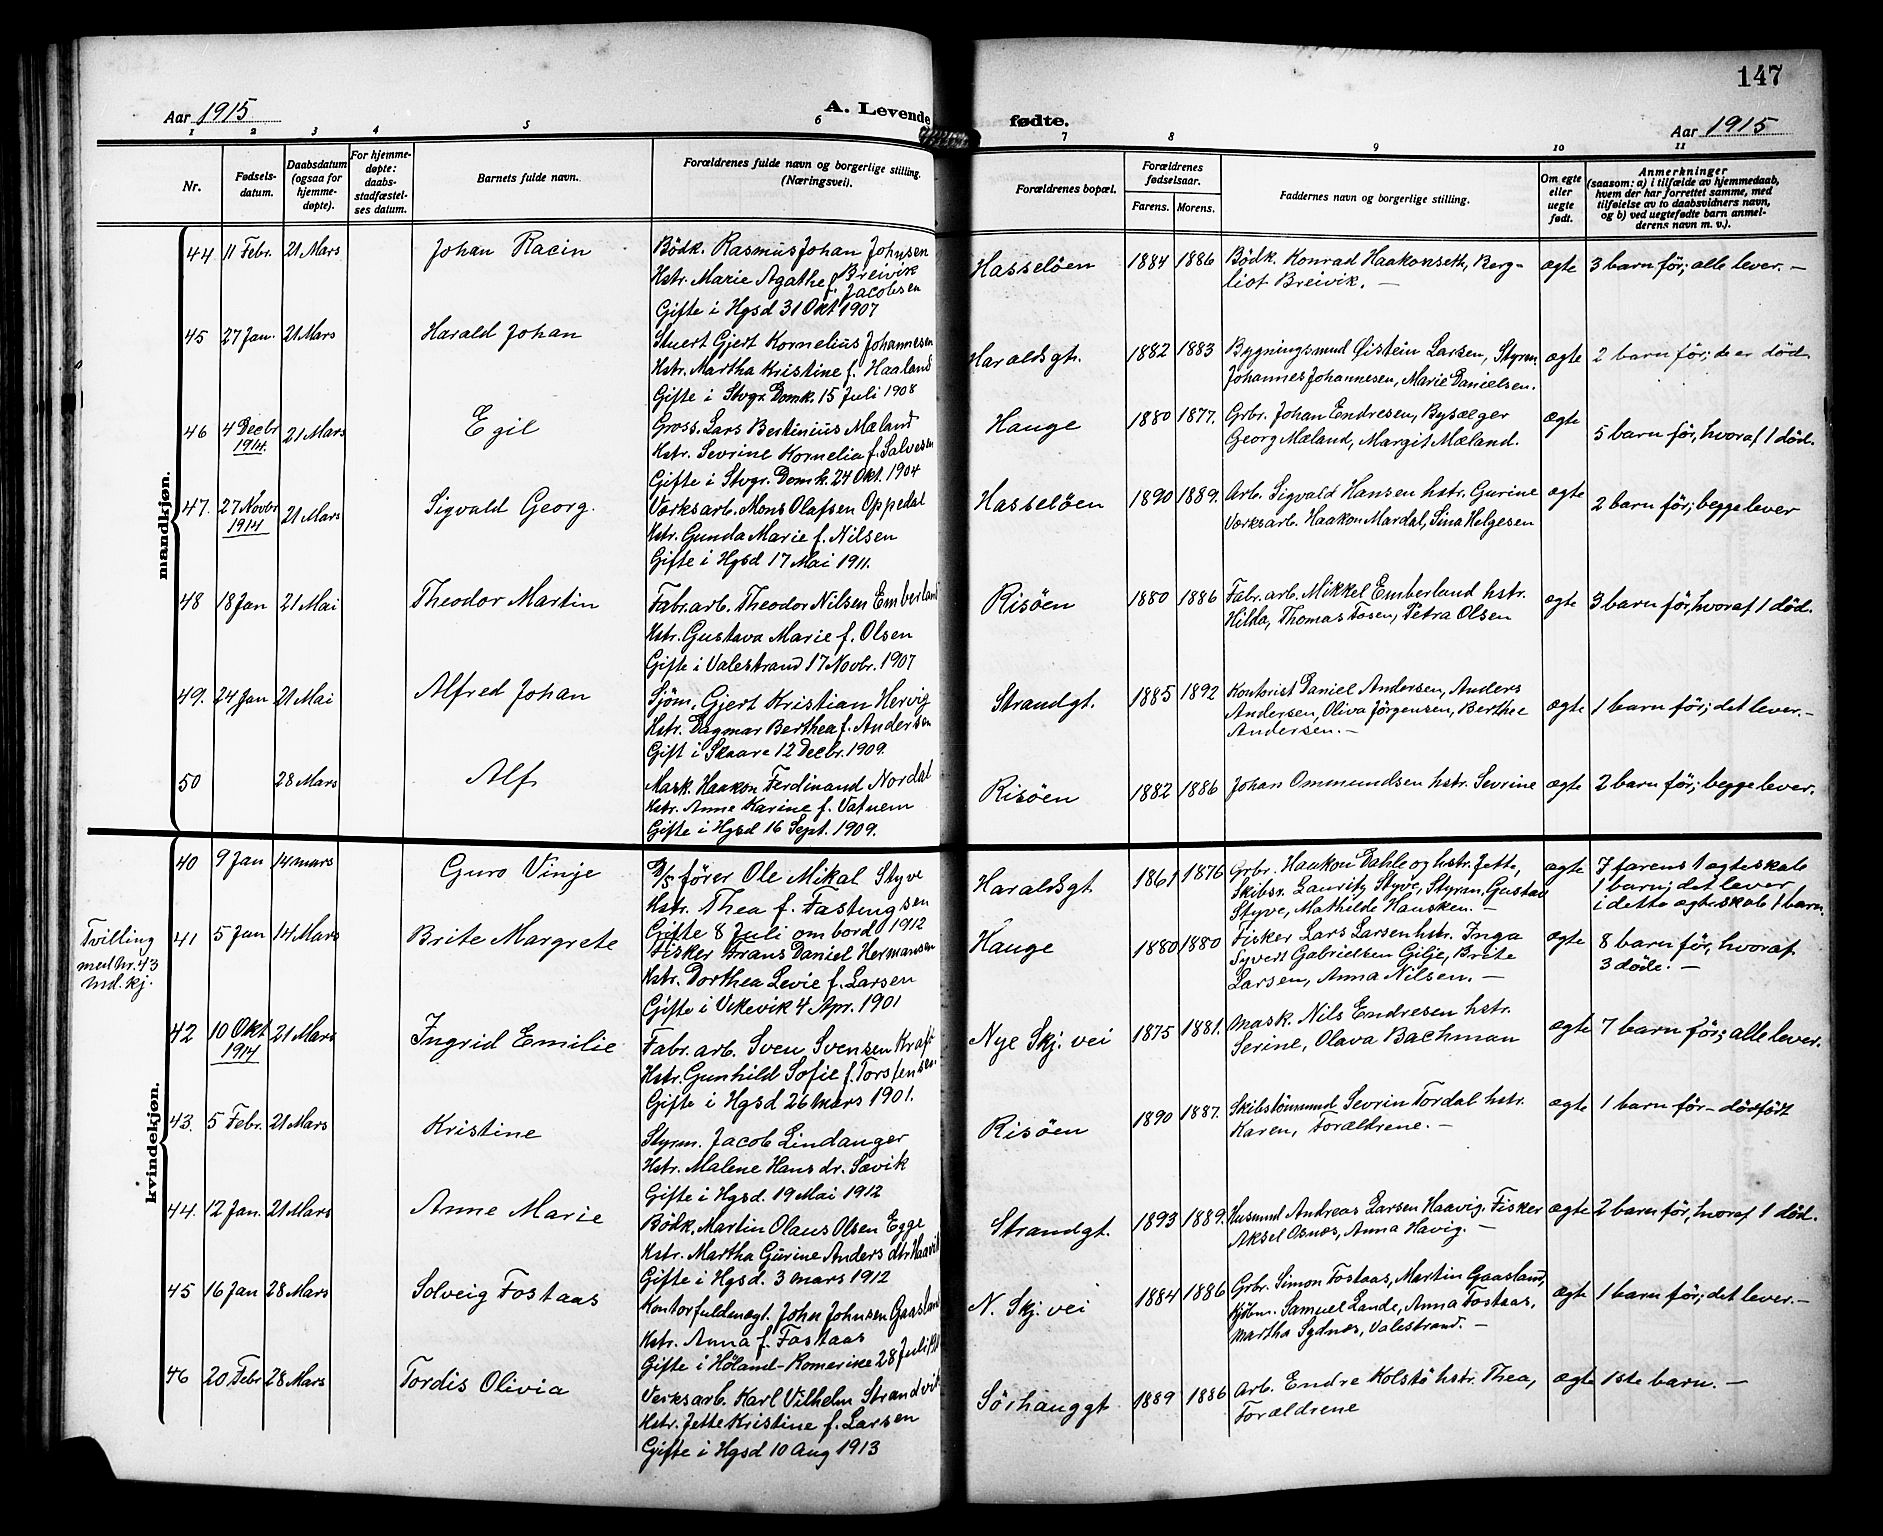 147
Aar 1915
A. Levende fødte.
Aar 1915
1 2 3 4 5 6 7 8 9 10 11
Nr.
Fødsels-
datum.
Daabsdatum
(ogsaa for
hjemme-
døpte).
For hjemme-
døpte:
daabs-
stadfæstel-
ses datum.
Barnets fulde navn.
Forældrenes fulde navn og borgerlige stilling.
(Næringsvei).
Forældrenes bopæl.
Forældrenes
fødselsaar.
Farens. Morens.
Faddernes navn og borgerlige stilling.
Om egte
eller
uegte
født.
Anmerkninger
(saasom: a) i tilfælde av hjemmedaab,
hvem der har forrettet samme, med
tilføielse av to daabsvidners navn,
og b) ved uegtefødte barn anmel-
derens navn m. v.).
mandkjøn.
44 11 Febr. 21 Mars Johan Racin
Bödk. Rasmus Johan Johnsen
Breivik
Hstr. Marie Agathe f. Jacobsen
Gifte i Hgsd 31 Okt 1907
Hasselöen 1884 1886
Bödk. Konrad Haakonseth, Berg-
liot Breivik. —
ægte 3 barn för; alle lever. —
45 27 Jan. 21 Mars Harald Johan
Stuert Gjert Kornelius Johannesen
Hstr. Martha Kristine f. Haaland
Gifte i Stvgr. Domk. 15 Juli 1908
Haraldsgt. 1882 1883
Bygningsmd Öistein Larsen, Styrm.
Johannes Johannesen, Marie Danielsen.
ægte 2 barn för; de er död.
46 4 Decbr 1914. 21 Mars Egil
Gross. Lars Bertinius Mæland
Hstr. Sevrine Kornelia f. Salvesen
Gifte i Stvgr. Domk. 24 Okt. 1904
Hauge 1880 1877.
Grbr. Johan Endresen, Bysælger
Georg Mæland, Margit Mæland.
ægte 5 barn för, hvoraf 1 död.
47. 27 Novbr 1914 21 Mars Sigvald Georg.
Værksarb. Mons Olafsen Oppedal
Hstr. Gunda Marie f. Nilsen
Gifte i Hgsd 17 Mai 1911.
Hasselöen 1890 1889.
Arb. Sigvald Hansen hstr. Gurine
Værksarb. Haakon Mardal, Sina Helgesen
ægte 2 barn för; begge lever
48 18 Jan 21 Mai Theodor Martin
Fabr. arb. Theodor Nilsen Emberland
Hstr. Gustava Marie f. Olsen
Gifte i Valestrand 17 Novbr. 1907
Risöen 1880 1886
Fabr. arb. Mikkel Emberland hstr.
Hilda, Thomas Fosen, Petra Olsen
ægte 3 barn för, hvoraf 1 död.
49. 24 Jan 21 Mai Alfred Johan
Sjöm. Gjert Kristian Hervig
Hstr. Dagmar Berthea f. Andersen
Gift i Skaare 12 Decbr. 1909.
Strandgt. 1885 1892
Kontorist Daniel Andersen, Anders
Andersen, Oliva Jörgensen, Berthe
Andersen. —
ægte 1 barn för; det lever. —
50 28 Mars Alf
Mask. Haakon Ferdinand Nordal
Hstr. Anne Karine f. Vatnem
Gifte i Hgsd 16 Sept. 1909.
Risöen 1882 1886
Johan Ommundsen hstr. Sevrine
ægte 2 barn för; begge lever.
kvindekjøn.
40 9 Jan 14 mars Guro Vinje
D/S förer Ole Mikal Styve
Hstr. Thea f. Fastingsen
Gifte 8 Juli ombord 1912
Haraldsgt 1861 1876
Grbr. Haakon Dahle og hstr. Jette,
Skibsr. Lauritz Styve, Styrm. Gustav
Styve, Mathilde Hausken. —
ægte 7 farens 1 ægteskab
1 barn; det lever
i dette ægteskab 1 barn.
Tvilling
med nr. 43
Md. kj.
41 5 Jan 14 Mars Brite Margrete
Fisker Frans Daniel Hermansen
Hstr. Dorthea Levie f. Larsen
Gifte i Vikevik 4 Apr. 1901
Hauge 1880 1880
Fisker Lars Larsen hstr. Inga
Syvert Gabrielsen Gilje, Brite
Larsen, Anna Nilsen. —
ægte 8 barn för, hvoraf
3 döde. —
42 10 Okt 1914 21 Mars Ingrid Emilie
Fabr. arb. Sven Svensen Kraft
Hstr. Gunhild Sofie f. Torstensen
Gifte i Hgsd 26 mars 1901.
Nye Skj. vei 1875 1881.
Mask. Nils Endresen hstr.
Serine, Olava Bachman
ægte 7 barn för; alle lever.
43. 5 Febr. 21 Mars Kristine
Styrm. Jacob Lindanger
Hstr. Malene Hans dr. Sævik
Gifte i Hgsd. 19 Mai 1912
Risöen 1890 1887.
Skibstömmmd Sevrin Tordal hstr.
Karen, Forældrene. —
ægte 1 barn för – dödfödt
44. 12 Jan. 21 Mars Anne Marie
Bödk. Martin Olaus Olsen Egge
Hstr. Martha Gurine Anders dtr Haavik
Gifte i Hgsd. 3 mars 1912
Strandgt. 1893 1889.
Husmd Andreas Larsen Haavig. Fisker
Aksel Osnes, Anna Havig. —
ægte 2 barn för, hvoraf 1 död.
45 16 Jan 28 Mars Solveig Fostaas
Kontorfuldmægt. John Johnsen Gaasland
Hstr. Anna f. Fostaas
Gifte i Höland–Romerike 28 Juli
N. Skj. vei 1884 1886
Grbr. Simon Fostaas, Martin Gaasland,
Kjöbm. Samuel Lande, Anna Fostaas,
Martha Sydnes, Valestrand. —
ægte 1 barn för; det lever. —
46 20 Febr 28 Mars Tordis Olivia
Verksarb. Karl Vilhelm Strandvik
Hstr. Jette Kristine f. Larsen
Gifte i Hgsd 10 Aug 1913
Sörhauggt 1889 1886
Arb. Endre Kolstö hstr. Thea,
Forældrene
ægte 1ste barn. —